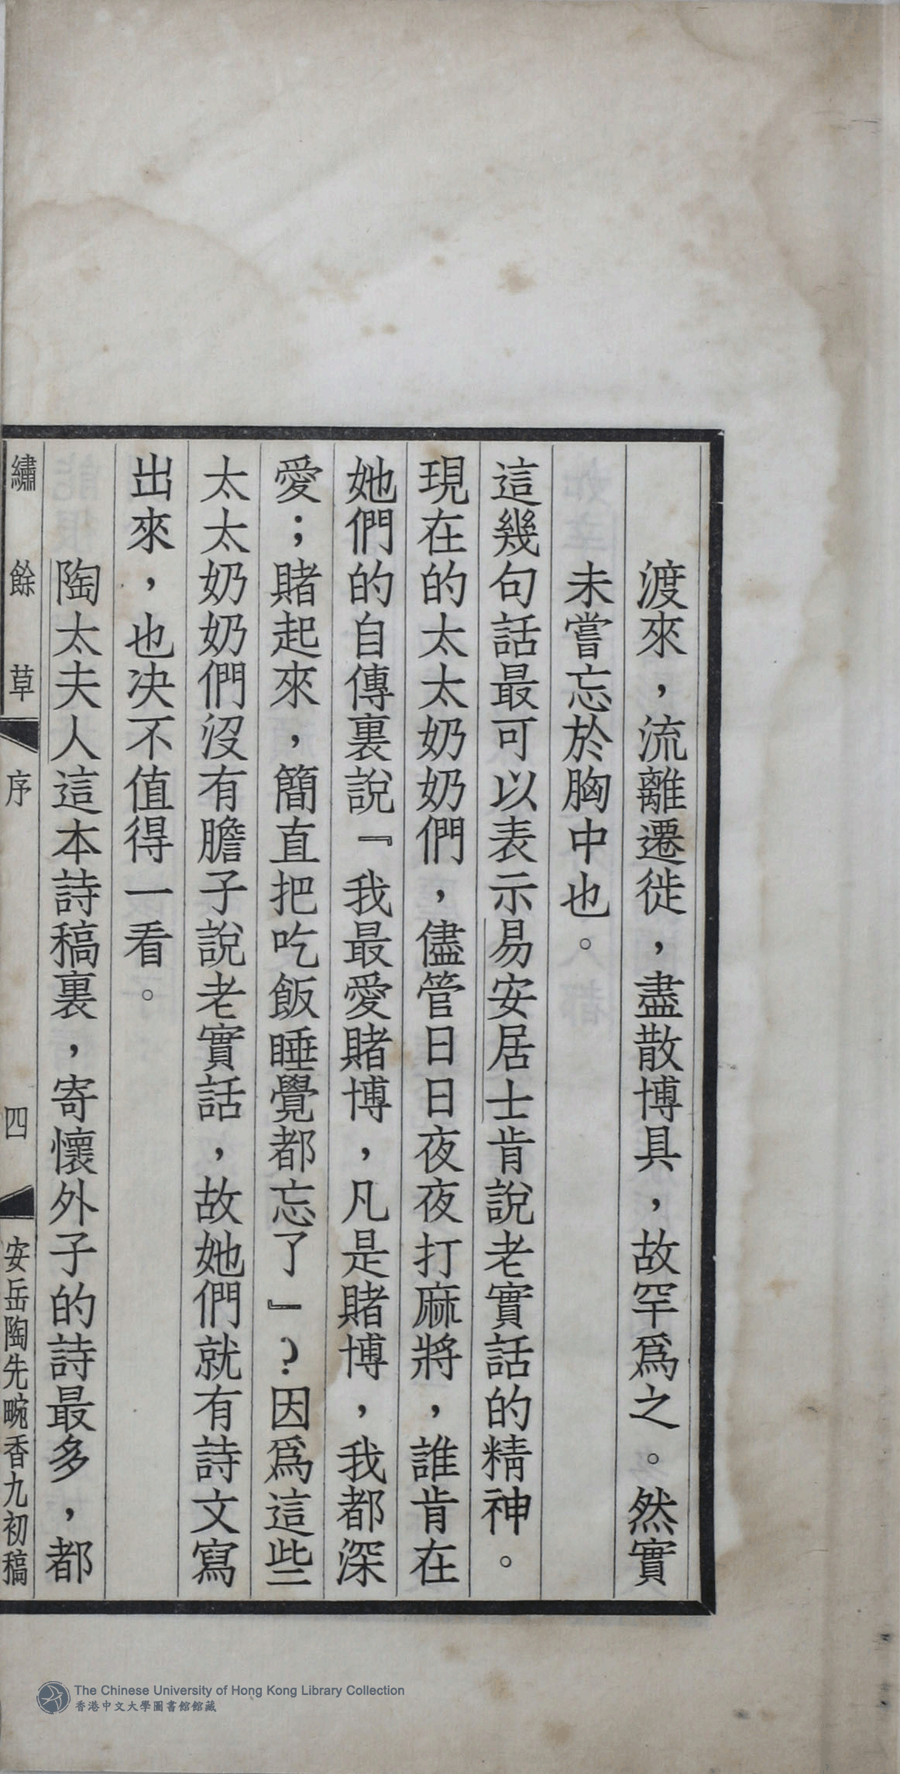 渡來，流離遷徙，盡散博具，故罕爲之。然實
未嘗忘於胸中也。
這幾句話最可以表示易安居士肯說老實話的精神。
現在的太太奶奶們，儘管日日夜夜打麻將，誰肯在
她們的自傳裏說『我最愛賭博，凡是賭博，我都深
愛；賭起來，簡直把吃飯睡覺都忘了』？因爲這些
太太奶奶們沒有膽子說老實話，故她們就有詩文寫
出來，也決不值得一看。
陶太夫人這本詩稿裏，寄懷外子的詩最多，都
繡餘草 序 四 安岳陶先畹香九初稿
The Chinese University of Hong Kong Library Collection
香港中文大學圖書館館藏